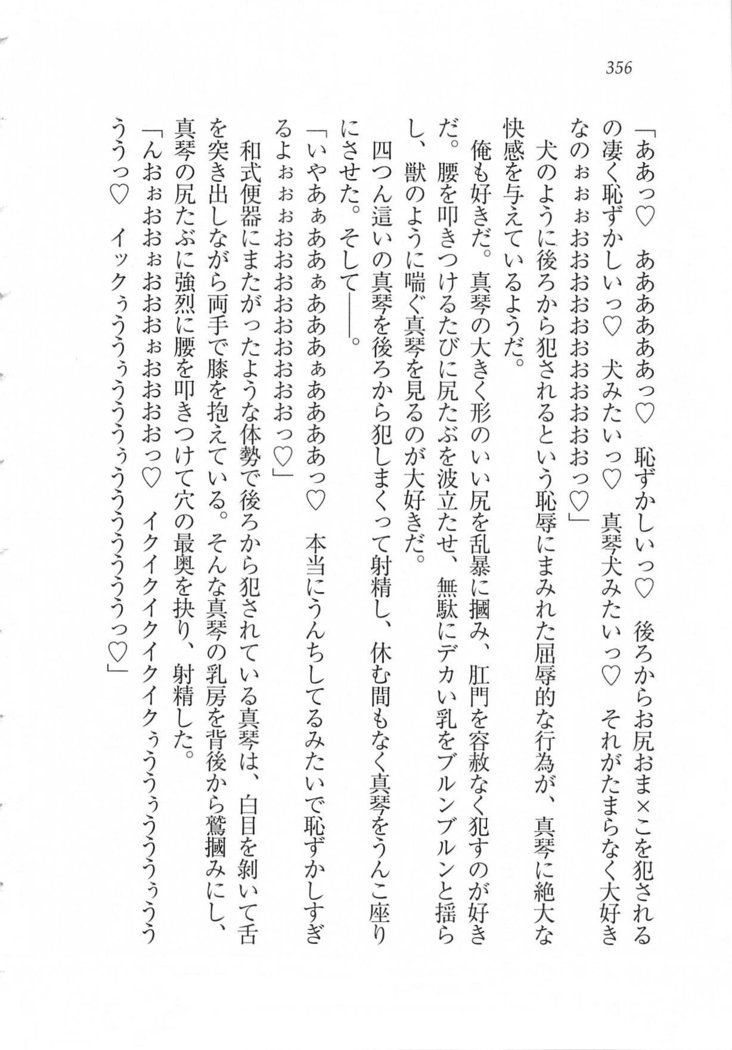 356
「ああっ♡　ああああああっ♡　恥ずかしいっ♡　後ろからお尻おま×こを犯される
の凄く恥ずかしいっ♡　犬みたいっ♡　真琴犬みたいっ♡　それがたまらなく大好き
なのぉぉぉおおおおおおおおおおおおっ♡」
犬のように後ろから犯されるという恥辱にまみれた屈辱的な行為が、真琴に絶大な
快感を与えているようだ。
俺も好きだ。真琴の大きく形のいい尻を乱暴に摑み、肛門を容赦なく犯すのが好き
だ。腰を叩きつけるたびに尻たぶを波立たせ、無駄にデカい乳をブルンブルンと揺ら
し、獣のように喘ぐ真琴を見るのが大好きだ。
四つん這いの真琴を後ろから犯しまくって射精し、休む間もなく真琴をうんこ座り
にさせた。そして――。
「いやあぁああぁあああぁああああっ♡　本当にうんちしてるみたいで恥ずかしすぎ
るよぉぉぉおおおおおおおおおっ♡」
和式便器にまたがったような体勢で後ろから犯されている真琴は、白目を剝いて舌
を突き出しながら両手で膝を抱えている。そんな真琴の乳房を背後から鷲摑みにし、
真琴の尻たぶに強烈に腰を叩きつけて穴の最奥を抉り、射精した。
「んおぉおおぉおおおぉおおおおっ♡　イクイクイクイクイクぅううぅうううぅうう
ううっ♡　イックぅううぅうううぅうううううううっ♡」